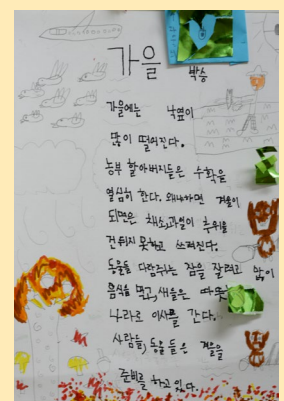 가을
박승
가을에는 낙옆이
많이 떨어진다.
농부 할아버지들은 수확을
열심히 한다. 왜냐하면 겨울이
되면은 채소,과일이 추위를
견뒤지 못하고 쓰려진다.
동물들 다람쥐는 잠을 잘려고 많이
음식을 먹고, 새들은 따뜻
나라로 이사를 간다.
사람들, 동물들은 겨울을
준비를 하고 있다.